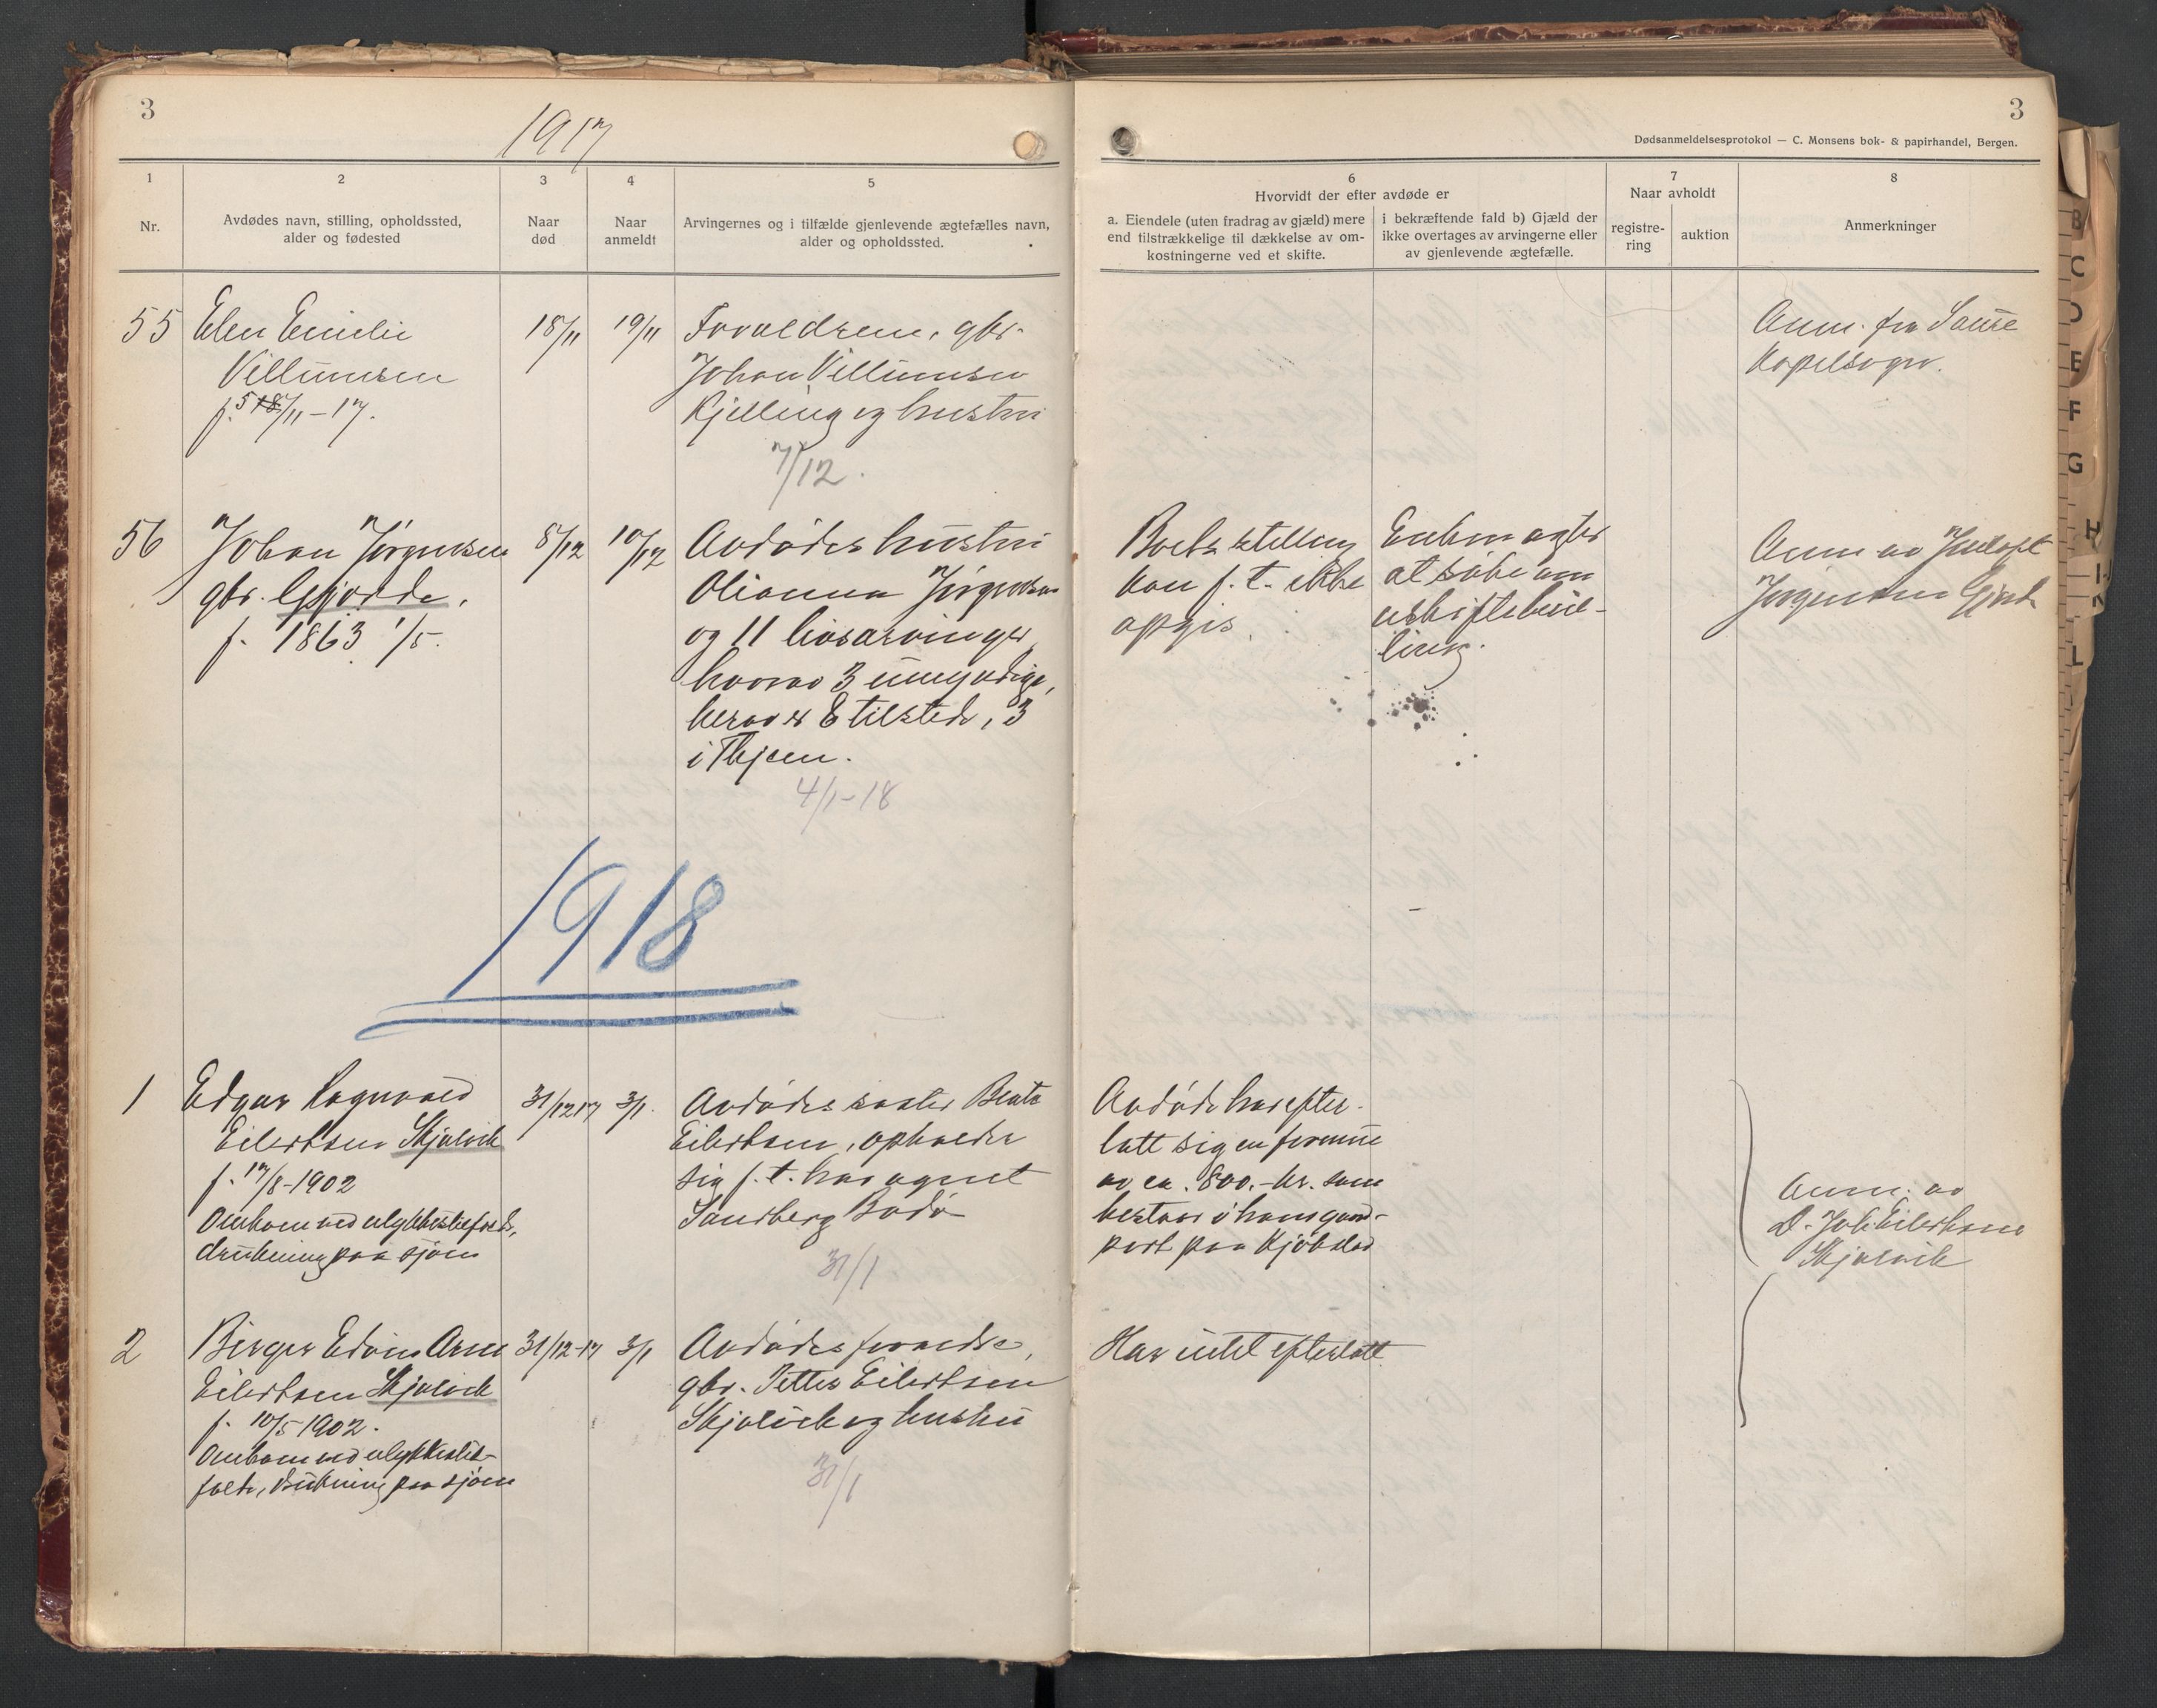 3
1917
3
Dødsanmeldelsesprotokol — C. Monsens bok- & papirhandel, Bergen.
1
Nr.
2
Avdødes navn, stilling, opholdssted,
alder og fødested
3
Naar
død
4
Naar
anmeldt
5
Arvingernes og i tilfælde gjenlevende ægtefælles navn,
alder og opholdssted.
6
Hvorvidt der efter avdøde er
a. Eiendele (uten fradrag av gjæld) mere
end tilstrækkelige til dækkelse av om-
kostningerne ved et skifte.
i bekræftende fald b) Gjæld der
ikke overtages av arvingerne eller
av gjenlevende ægtefælle.
7
Naar avholdt
registre-
ring
auktion
8
Anmerkninger
55
Elen Emilie
Villumsen
f. 5/11-17.
18/11
19/11
Forældrene, gbr.
Johan Villumsen
Kjelling og hustru
7/12.
Anm. fra Saura
Kapelsogn.
56
Johan Jørgensen
gbr. Gjørde,
f. 1863 1/5.
8/12
10/12
Avdødes hustru
Olianna Jørgensen
og 11 livsarvinger
hvorav 3 umyndige,
herav er 8 tilstede, 3
i
4/1-18
Boets stilling
kan f. t. ikke
opgis.
Enken agter
at søke om
uskiftebevil-
ling.
Anm av
Jørgensen
1918
1
Edgar Ragnvald
Eilertsen Skjelvik
f. 17/8-1902
Omkom ved ulykkestilfælde,
drukning paa sjøen
31/12 17
3/1.
Avdødes søster Beate
Eilertsen, opholder
sig f. t. hos agent
Sandberg Bodø
31/1
Avdøde har efter-
latt sig en formue
av ca. 800.- kr. som
bestaar i
part paa
Anm. av
Eilertsen
Skjelvik
2
Birger Edvin Arne
Eilertsen Skjelvik
f. 10/5 1902.
Omkom ved ulykkestil-
fælde, drukning paa sjøen
31/12-17
3/1
Avdødes forældre,
gbr. Petter Eilertsen
Skjelvik og hustru
31/1
Har intet efterlatt
B
C
D
E
F
G
H
I
L